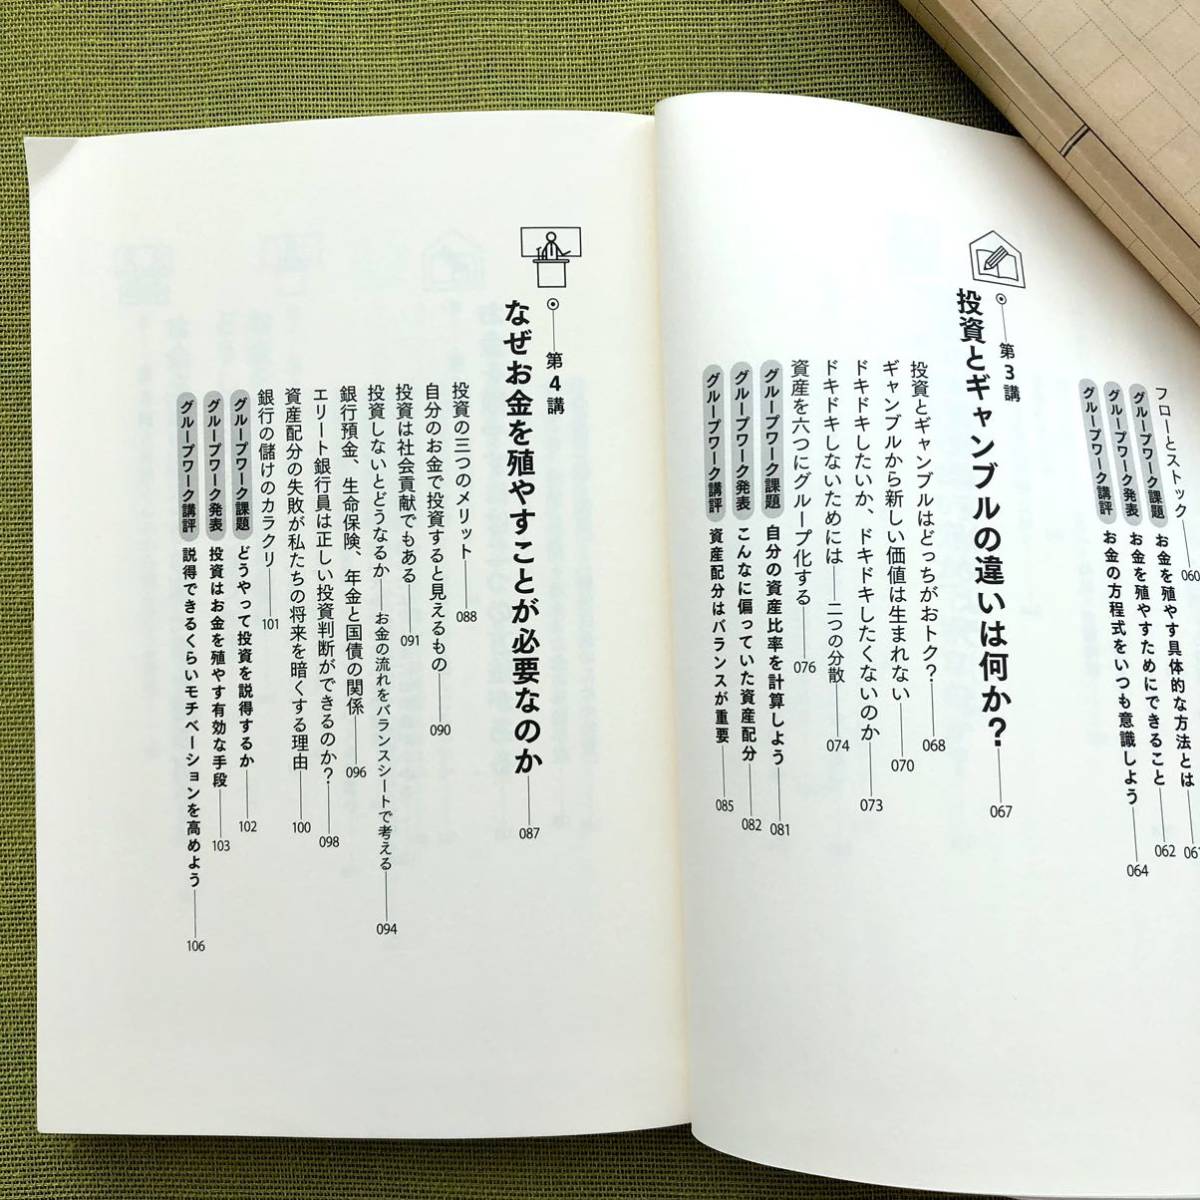 フローとストック 060
グループワーク課題 お金を殖やす具体的な方法とは 061
グループワーク発表 お金を殖やすためにできること 062
グループワーク講評 お金の方程式をいつも意識しよう 064
第3講
投資とギャンブルの違いは何か? 067
投資とギャンブルはどっちがおトク? 068
ギャンブルから新しい価値は生まれない 070
ドキドキしたいか、ドキドキしたくないのか 073
ドキドキしないためには——二つの分散 074
資産を六つにグループ化する 076
グループワーク課題 自分の資産比率を計算しよう 081
グループワーク発表 こんなに偏っていた資産配分 082
グループワーク講評 資産配分はバランスが重要 085
第4講
なぜお金を殖やすことが必要なのか 087
投資の三つのメリット 088
自分のお金で投資すると見えるもの 090
投資は社会貢献でもある 091
投資しないとどうなるか——お金の流れをバランスシートで考える 094
銀行預金、生命保険、年金と国債の関係 096
エリート銀行員は正しい投資判断ができるのか? 098
資産配分の失敗が私たちの将来を暗くする理由 100
銀行の儲けのカラクリ 101
グループワーク課題 どうやって投資を説得するか 102
グループワーク発表 投資はお金を殖やす有効な手段 103
グループワーク講評 説得できるくらいモチベーションを高めよう 106